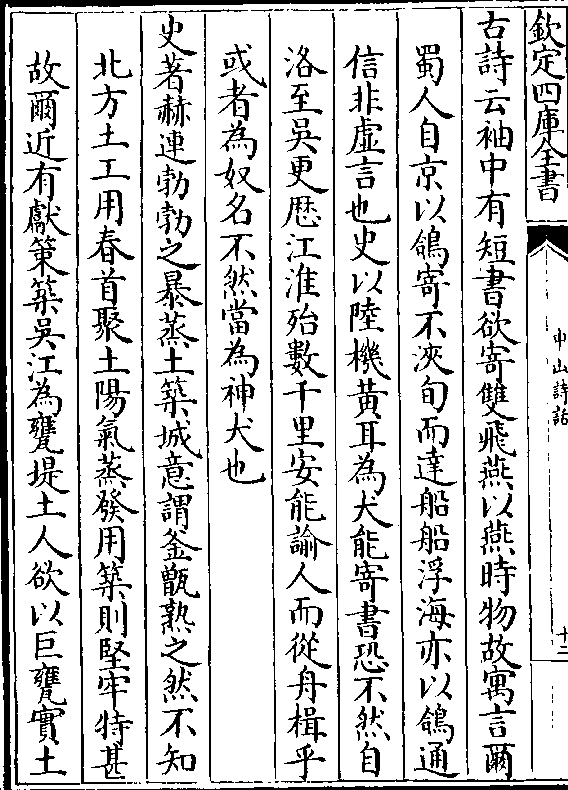 欽定四庫全書
中山詩話
十二
古詩云袖中有短書欲寄雙飛燕以燕時物故寓言爾
蜀人自京以鴿寄不浹旬而達船船浮海亦以鴿通
信非虛言也史以陸機黃耳為犬能寄書恐不然自
洛至吳更歴江淮殆數千里安能諭人而從舟楫乎
或者為奴名不然當為神犬也
史著赫連勃勃之暴蒸土築城意謂釜甑熟之然不知
北方土工用春首聚土陽氣蒸發用築則堅牢特甚
故爾近有獻策築吳江為甕堤土人欲以巨甕實土